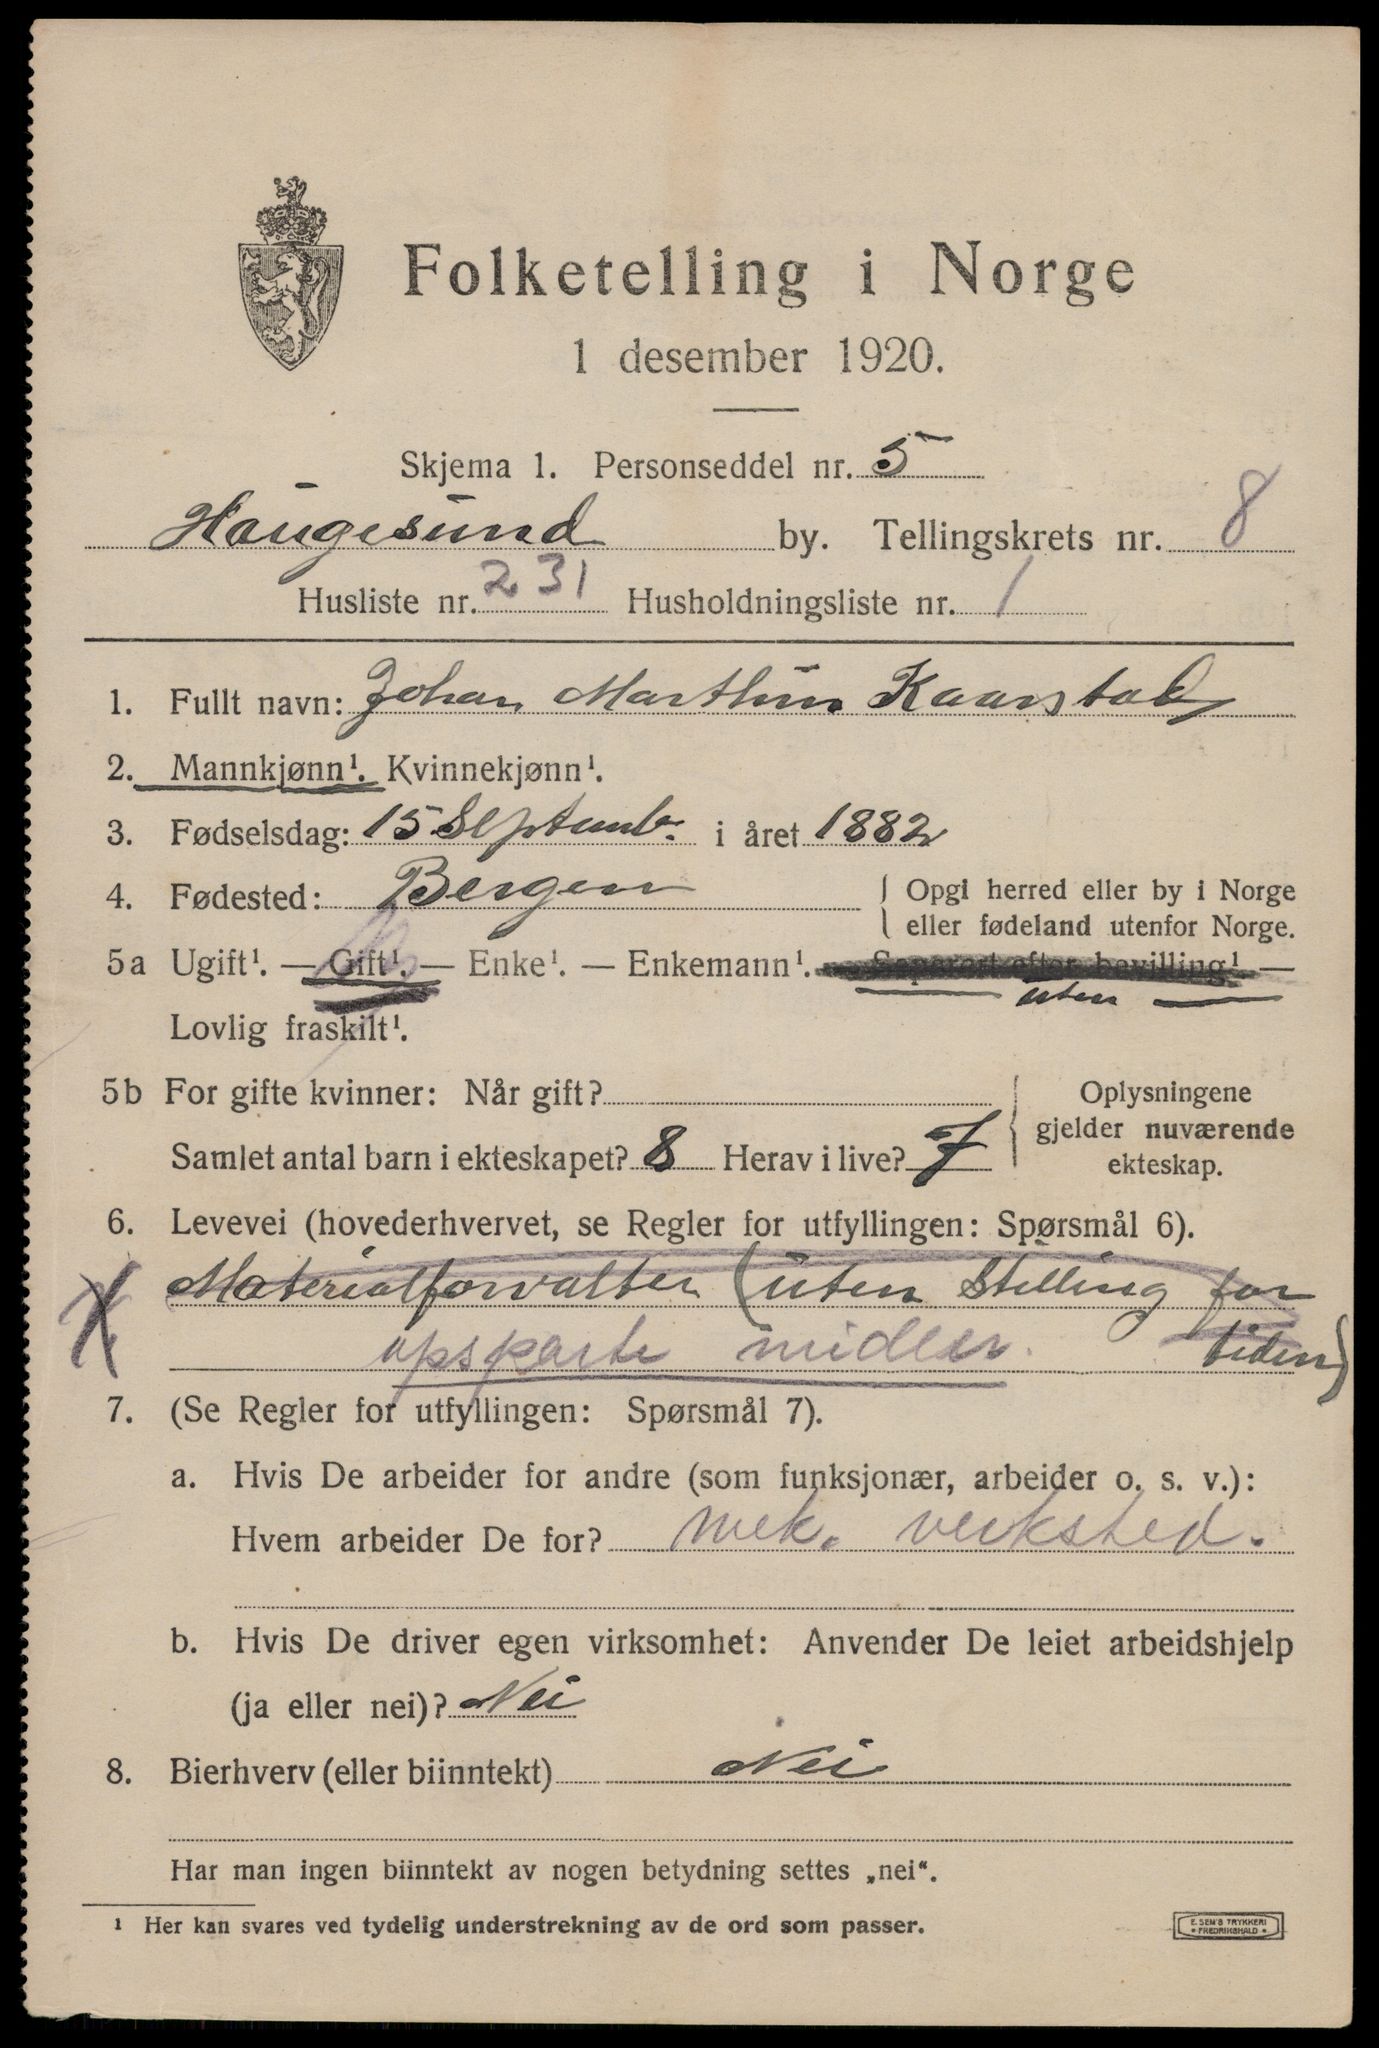 Folketelling i Norge
1 desember 1920.
Skjema 1. Personseddel nr. 5
Haugesund by. Tellingskrets nr. 8
Husliste nr. 231 Husholdningsliste nr. 1
1. Fullt navn: Johan Marthin Kaarstad
2. Mannkjønn¹. Kvinnekjønn¹.
3. Fødselsdag: 15 Septemb. i året 1882
4. Fødested: Bergen { Opgi herred eller by i Norge
eller fødeland utenfor Norge.
5a Ugift¹. — Gift¹. — Enke¹. — Enkemann¹. — Separert efter bevilling¹. —
uten
Lovlig fraskilt¹.
5b For gifte kvinner: Når gift? { Oplysningene
gjelder nuværende
ekteskap.
Samlet antal barn i ekteskapet? 8 Herav i live? 7
6. Levevei (hovederhvervet, se Regler for utfyllingen: Spørsmål 6).
Materialforvalter (uten Stilling for
opsparte midler. tiden)
7. (Se Regler for utfyllingen: Spørsmål 7).
a. Hvis De arbeider for andre (som funksjonær, arbeider o. s. v.):
Hvem arbeider De for? mek. verksted.
b. Hvis De driver egen virksomhet: Anvender De leiet arbeidshjelp
(ja eller nei)? Nei
8. Bierhverv (eller biinntekt) Nei
Har man ingen biinntekt av nogen betydning settes „nei“.
¹ Her kan svares ved tydelig understrekning av de ord som passer.
E. SEM'S TRYKKERI
• FREDRIKSHALD •